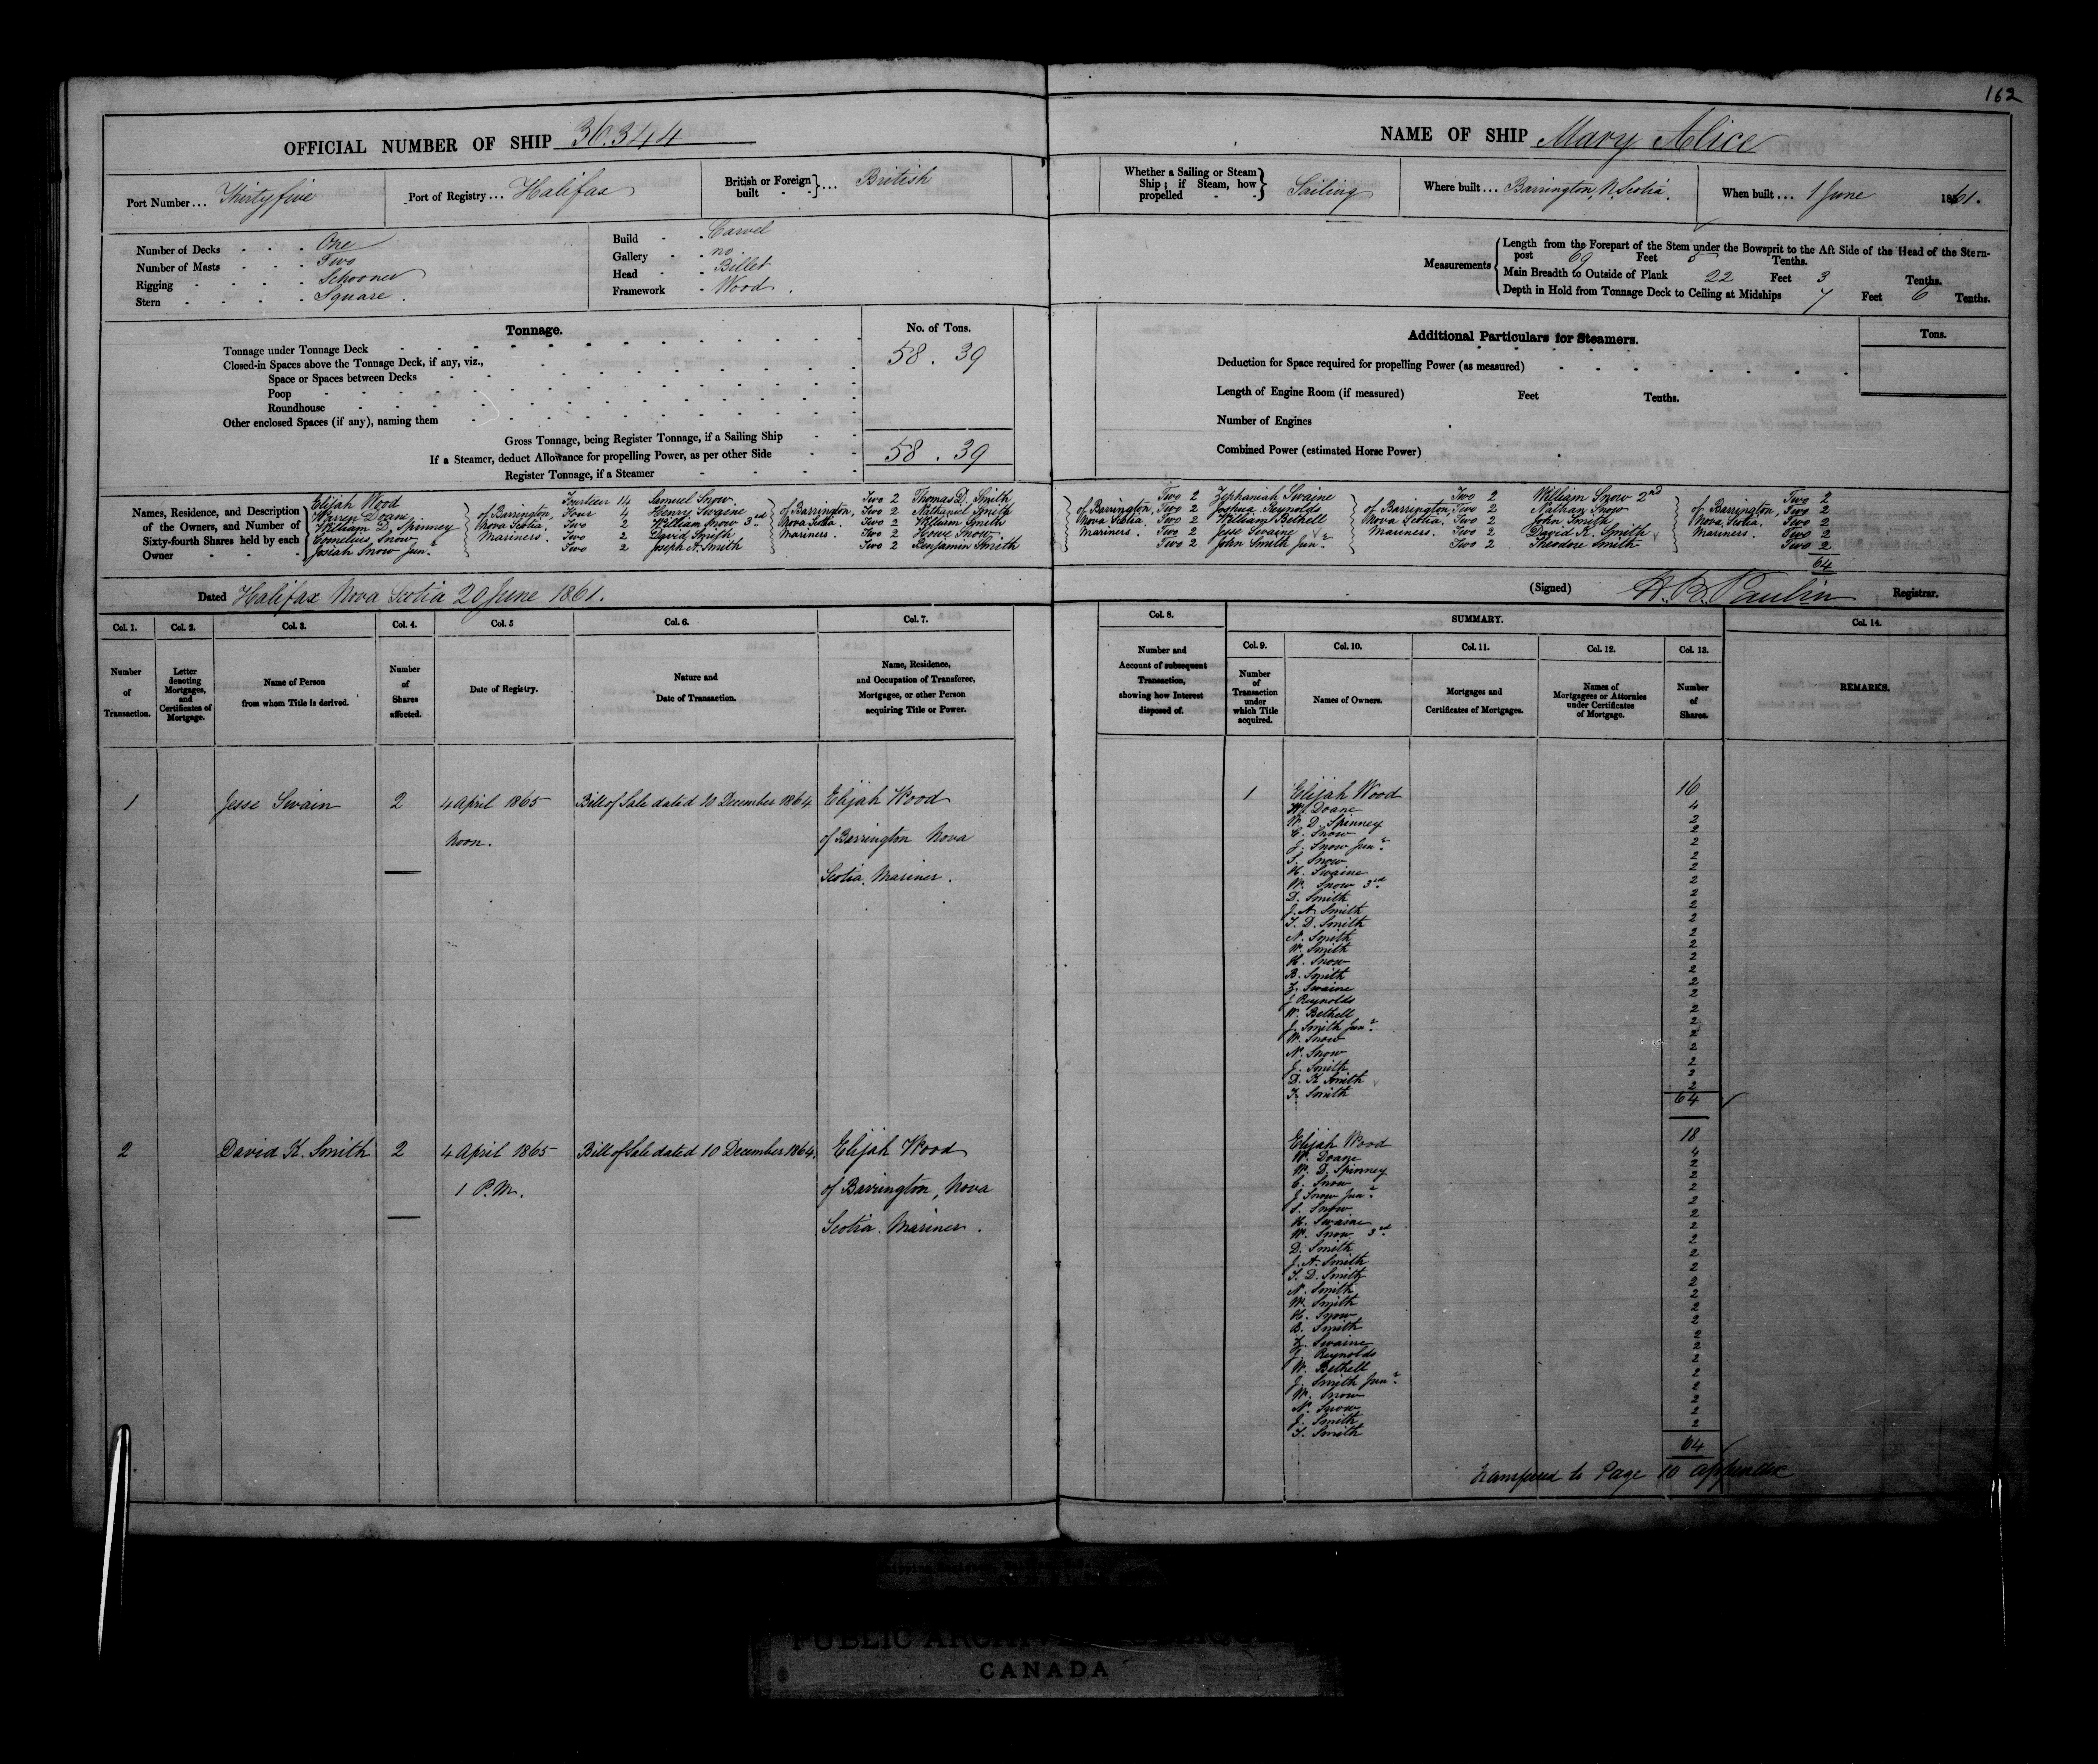 162
OFFICIAL NUMBER OF SHIP 36.344
NAME OF SHIP Mary Alice
Port Number... Thirtyfive
Port of Registry... Halifax
British or Foreign built } ... British
Whether a Sailing or Steam Ship; if Steam, how propelled } Sailing
Where built... Barrington, N. Scotia.
When built... 1 June 1861.
Number of Decks - - - One
Number of Masts - - - Two
Rigging - - - - Schooner
Stern - - - - Square.
Build - - Carvel
Gallery - - no
Head - - Billet
Framework - Wood.
Measurements { Length from the Forepart of the Stem under the Bowsprit to the Aft Side of the Head of the Stern-
post 69 Feet 5 Tenths.
Main Breadth to Outside of Plank 22 Feet 3 Tenths.
Depth in Hold from Tonnage Deck to Ceiling at Midships 7 Feet 6 Tenths.
Tonnage.
No. of Tons.
Tonnage under Tonnage Deck 58. 39
Closed-in Spaces above the Tonnage Deck, if any, viz.,
Space or Spaces between Decks
Poop
Roundhouse
Other enclosed Spaces (if any), naming them
Gross Tonnage, being Register Tonnage, if a Sailing Ship
If a Steamer, deduct Allowance for propelling Power, as per other Side 58. 39
Register Tonnage, if a Steamer
Additional Particulars for Steamers.
Tons.
Deduction for Space required for propelling Power (as measured)
Length of Engine Room (if measured) Feet Tenths.
Number of Engines
Combined Power (estimated Horse Power)
Names, Residence, and Description
of the Owners, and Number of
Sixty-fourth Shares held by each
Owner
Elijah Wood
Warren Doane
William D. Spinney
Cornelius Snow
Josiah Snow Junr.
of Barrington,
Nova Scotia.
Mariners.
Fourteen 14
Four 4
Two 2
Two 2
Two 2
Samuel Snow
Henry Swaine
William Snow 3rd
David Smith
Joseph A. Smith
of Barrington,
Nova Scotia.
Mariners.
Two 2
Two 2
Two 2
Two 2
Two 2
Thomas D. Smith
Nathaniel Smith
William Smith
Howe Snow
Benjamin Smith
of Barrington,
Nova Scotia,
Mariners.
Two 2
Two 2
Two 2
Two 2
Two 2
Zephaniah Swaine
Joshua Reynolds
William Bethell
Jesse Swaine
John Smith Junr.
of Barrington,
Nova Scotia,
Mariners.
Two 2
Two 2
Two 2
Two 2
Two 2
William Snow 2nd
Nathan Snow
John Smith
David K. Smith
Theodore Smith
of Barrington,
Nova Scotia,
Mariners.
Two 2
Two 2
Two 2
Two 2
Two 2
64
Dated Halifax Nova Scotia 20 June 1861.
(Signed) H. B. Paulin Registrar.
Col. 1.
Col. 2.
Col. 3.
Col. 4.
Col. 5
Col. 6.
Col. 7.
Col. 8.
SUMMARY.
Col. 14.
Number of Transaction.
Letter denoting Mortgages, and Certificates of Mortgage.
Name of Person from whom Title is derived.
Number of Shares affected.
Date of Registry.
Nature and Date of Transaction.
Name, Residence, and Occupation of Transferee, Mortgagee, or other Person acquiring Title or Power.
Number and Account of subsequent Transaction, showing how Interest disposed of.
Col. 9.
Col. 10.
Col. 11.
Col. 12.
Col. 13.
Number of Transaction under which Title acquired.
Names of Owners.
Mortgages and Certificates of Mortgages.
Names of Mortgagees or Attornies under Certificates of Mortgage.
Number of Shares.
REMARKS.
1 Jesse Swain 2 4 April 1865 Bill of Sale dated 10 December 1864 Elijah Wood
Noon. of Barrington Nova
Scotia. Mariner.
1 Elijah Wood 16
W. Doane 4
W. D. Spinney 2
C. Snow 2
J. Snow Junr. 2
S. Snow 2
H. Swaine 2
W. Snow 3rd 2
D. Smith 2
J. A. Smith 2
T. D. Smith 2
N. Smith 2
W. Smith 2
H. Snow 2
B. Smith 2
Z. Swaine 2
J Reynolds 2
W. Bethell 2
J. Smith Junr. 2
W. Snow 2
N. Snow 2
J. Smith 2
D. K Smith 2
T. Smith 2
64
2 David K. Smith 2 4 April 1865 Bill of Sale dated 10 December 1864. Elijah Wood
1 P.M. of Barrington, Nova
Scotia. Mariner.
Elijah Wood 18
W. Doane 4
W. D. Spinney 2
C. Snow 2
J Snow Junr. 2
S. Snow 2
H. Swaine 2
W. Snow 3rd 2
D. Smith 2
J. A. Smith 2
T. D. Smith 2
N. Smith 2
W. Smith 2
H. Snow 2
B. Smith 2
Z. Swaine 2
J. Reynolds 2
W. Bethell 2
J. Smith Junr. 2
W. Snow 2
N. Snow 2
J. Smith 2
T. Smith 2
64
Transferred to Page 10 appendix
PUBLIC ARCHIVES
CANADA